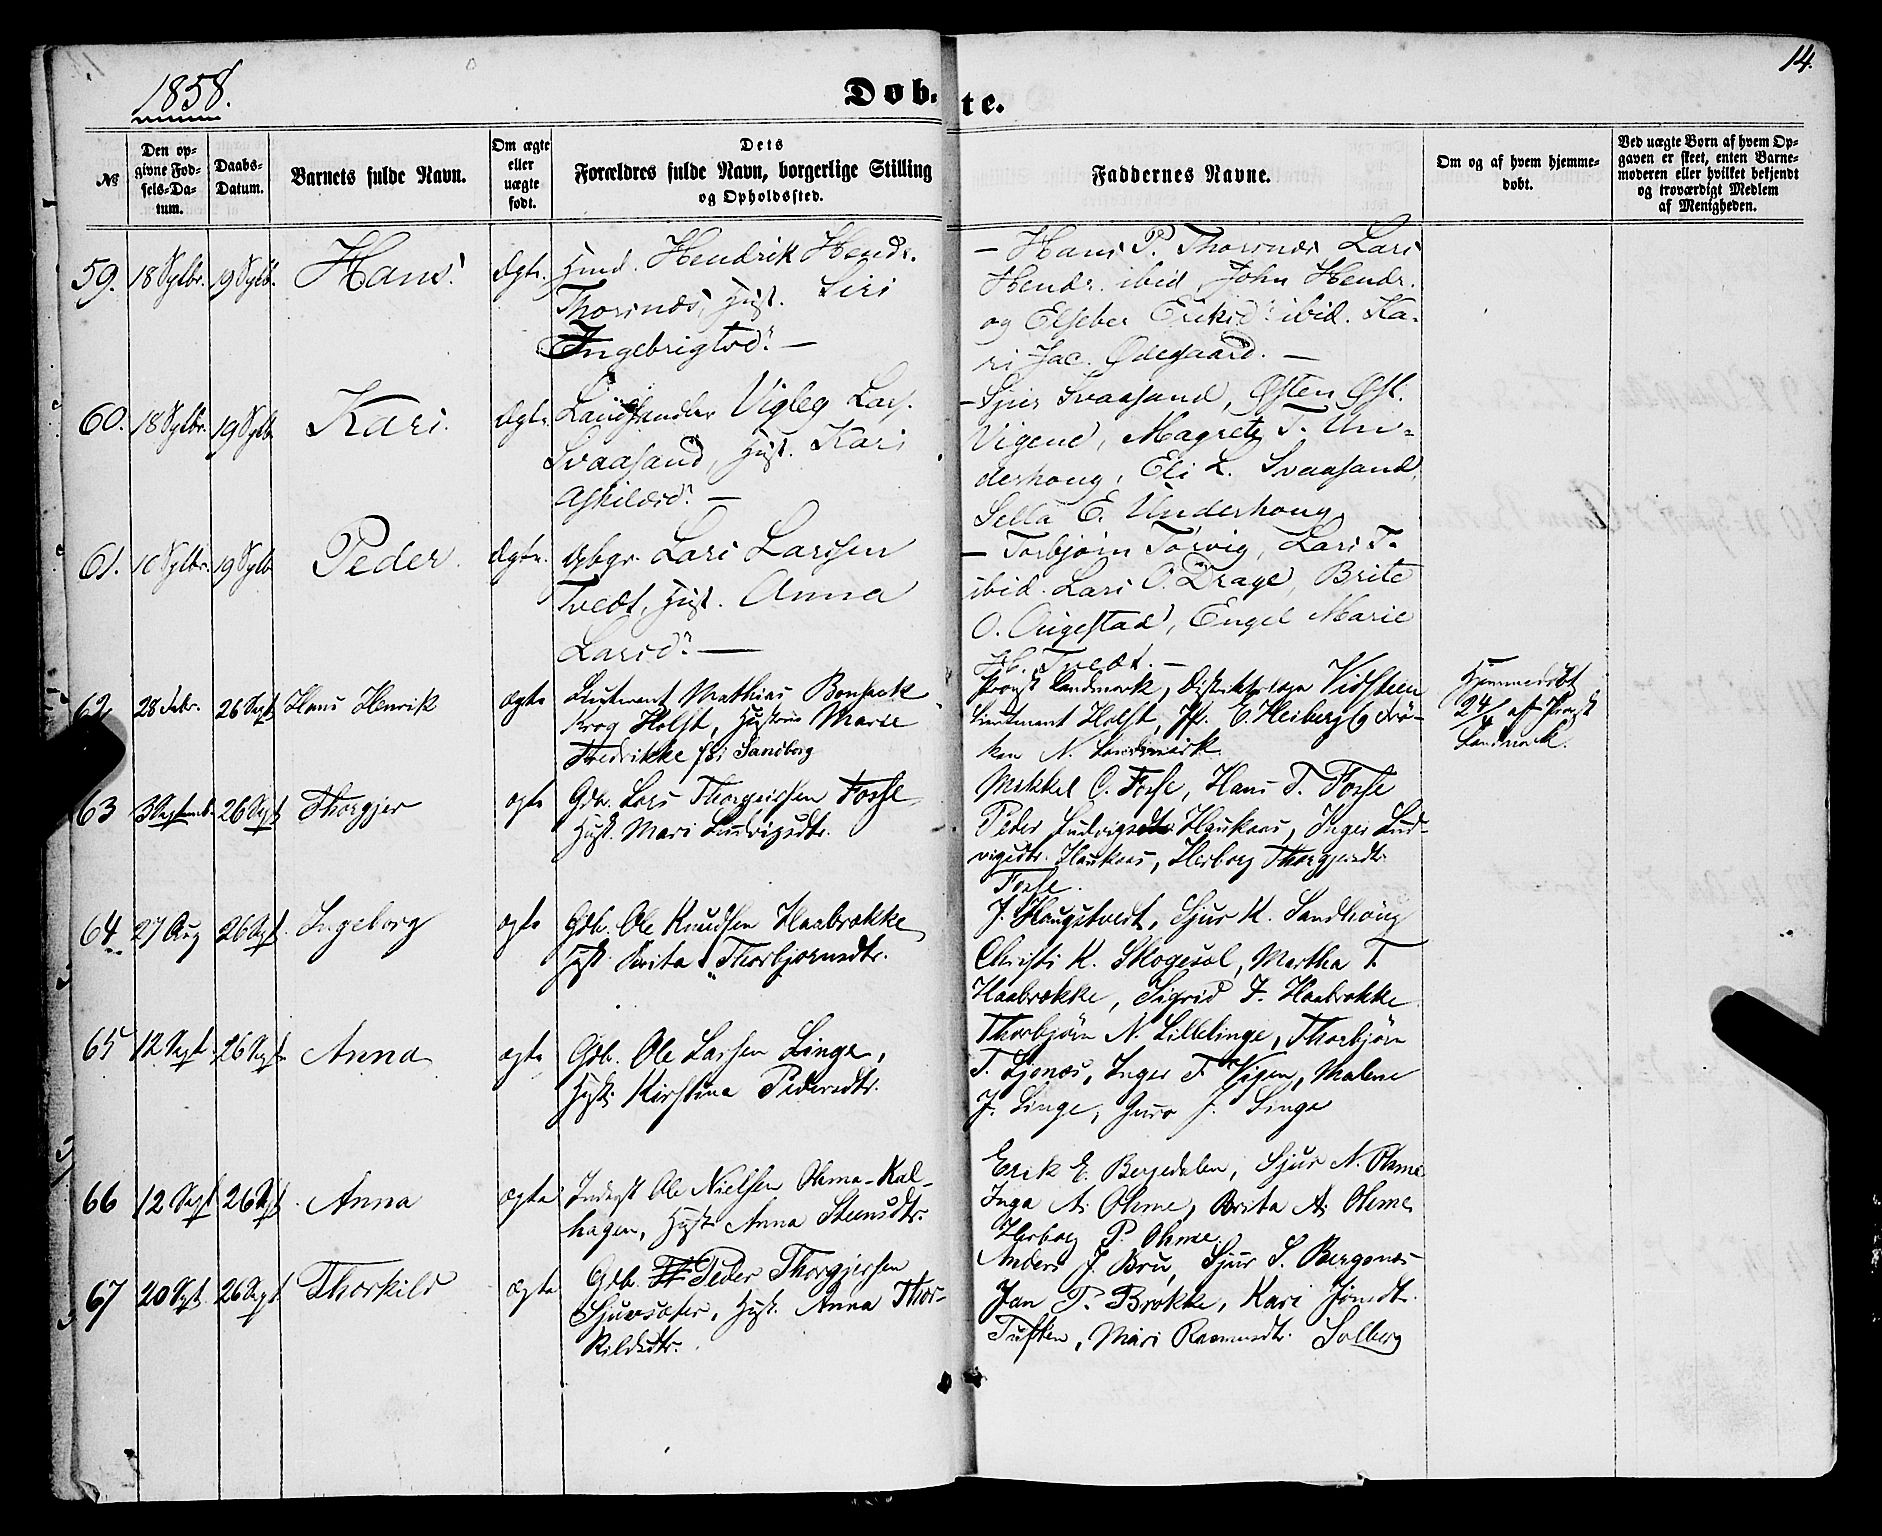 1858.
14.
Døb-te.
№
Den op-
givne Fød-
sels-Da-
tum.
Daabs-
Datum.
Barnets fulde Navn.
Om ægte
eller
uægte
født.
Dets
Forældres fulde Navn, borgerlige Stilling
og Opholdssted.
Faddernes Navne.
Om og af hvem hjemme-
døbt.
Ved uægte Børn af hvem Op-
gaven er skeet, enten Barne-
moderen eller hvilket bekjendt
og troværdigt Medlem
af Menigheden.
59. 18 Sptbr. 19 Sptb. Hans Ægte. Huusmd. Hendrik Hendr.
Thorsnæs, Hust. Siri
Ingebrigtsd. —
— Hans P. Thorsnæs Lars
Hendr. ibid, John Hendr.
og Elseber Eriksd. ibid. Ka-
ri Jac. Ødegaard. —
60. 18 Sptbr. 19 Sptb Kari. Ægte. Landhandler Vigleg Lars.
Svaasand, Hust. Kari
Askildsd. —
— Sjur Svaasand, Østen Øst.
Vigene, Magrete T. Un-
derhoug, Eli L. Svaasand,
Sella E. Underhoug
61. 16 Sptbr. 19 Sptb Peder. Ægte. Opbgr. Lars Larssen
Tvedt, Hust. Anna
Larsd. —
— Torbjørn Tørvig, Lars T.
ibid. Lars O. Drage, Brite
O. Augestad, Engel Marie
Jb. Tvedt. —
62 28 Febr. 26 Sept Hans Henrik ægte Lieutenant Mathias Bonsack
Krog Holst, Hustrue Marie
Fredrikke f: Sandborg
Provst Landmark, Distriktslæge Vidsteen
Lieutenant Holst, Jfr. E. Heiberg og Frø-
ken N. Landmark.
Hjemmedøbt
24/4 af Provst
Landmark.
63 3 Septemb. 26 Sept Thorgjer ægte Gdb. Lars Thorgiersen Fosse
Hust. Mari Ludvigsdtr.
Mikkel O. Fosse, Hans T. Fosse
Peder Ludvigsdtr. Haukaas, Inger Lud-
vigsdtr. Haukaas, Herborg Thorgjersdtr.
Fosse.
64 27 Aug 26 Sept. Ingeborg ægte Gdb. Ole Knudsen Haabrække
Hust. Brita Thorbjørnsdtr.
J. Haugstvedt, Sjur K. Sandhoug
Christi K. Skogesol, Martha T.
Haabrække, Sigrid J. Haabrække
65 12 Sept. 26 Sept. Anna ægte Gdb. Ole Larsen Linge,
Hust. Kirstina Pedersdtr.
Thorbjørn N. Lillelinge, Thorbjørn
T. Ljonæs, Inger T. Vigen, Malene
J. Linge, Guro J. Linge
66 12 Sept 26 Sept. Anna ægte Inderst Ole Nielsen Ohma-Kal-
hagen, Hust. Anna Steensdtr.
Erik E. Bergedalen, Sjur N. Ohme
Inga A. Ohme, Brita A. Ohme
Herborg P. Ohme.
67 20 Sept. 26 Sept Thorkild ægte Gdb. Peder Thorgjersen
Sjuvsæter, Hust. Anna Thor-
kildsdtr.
Anders J. Bru, Sjur S. Bergenæs
Jan P. Brække, Kari Jonsdtr.
Tuften, Mari Rasmusdtr. Solberg